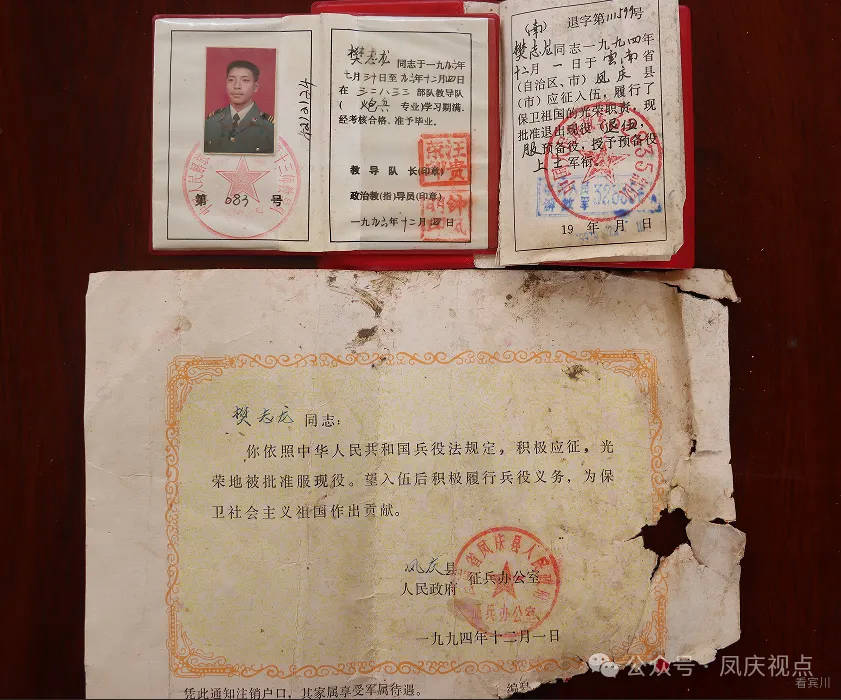 第 083 号
樊志龙 同志于一九九六年
七月三十日至九六年十二月四日
在 三二八三三 部队教导队
( 炮兵 专业)学习期满,
经考核合格、准予毕业。
教 导 队 长(印章)
政治教(指)导员(印章)
一九九六年十二月四日
(南) 退字第111599号
樊志龙同志一九九四年
十二月一日于云南省
(自治区、市)凤庆县
(市)应征入伍,履行了
保卫祖国的光荣职责,现
批准退出现役
服预备役,授予预备役
上士军衔。
19 年 月 日
樊志龙 同志:
你依照中华人民共和国兵役法规定,积极应征,光
荣地被批准服现役。望入伍后积极履行兵役义务,为保
卫社会主义祖国作出贡献。
凤庆县
人民政府 征兵办公室
一九九四年十二月一日
凭此通知注销户口,其家属享受军属待遇。
公众号·凤庆视点
看宾川